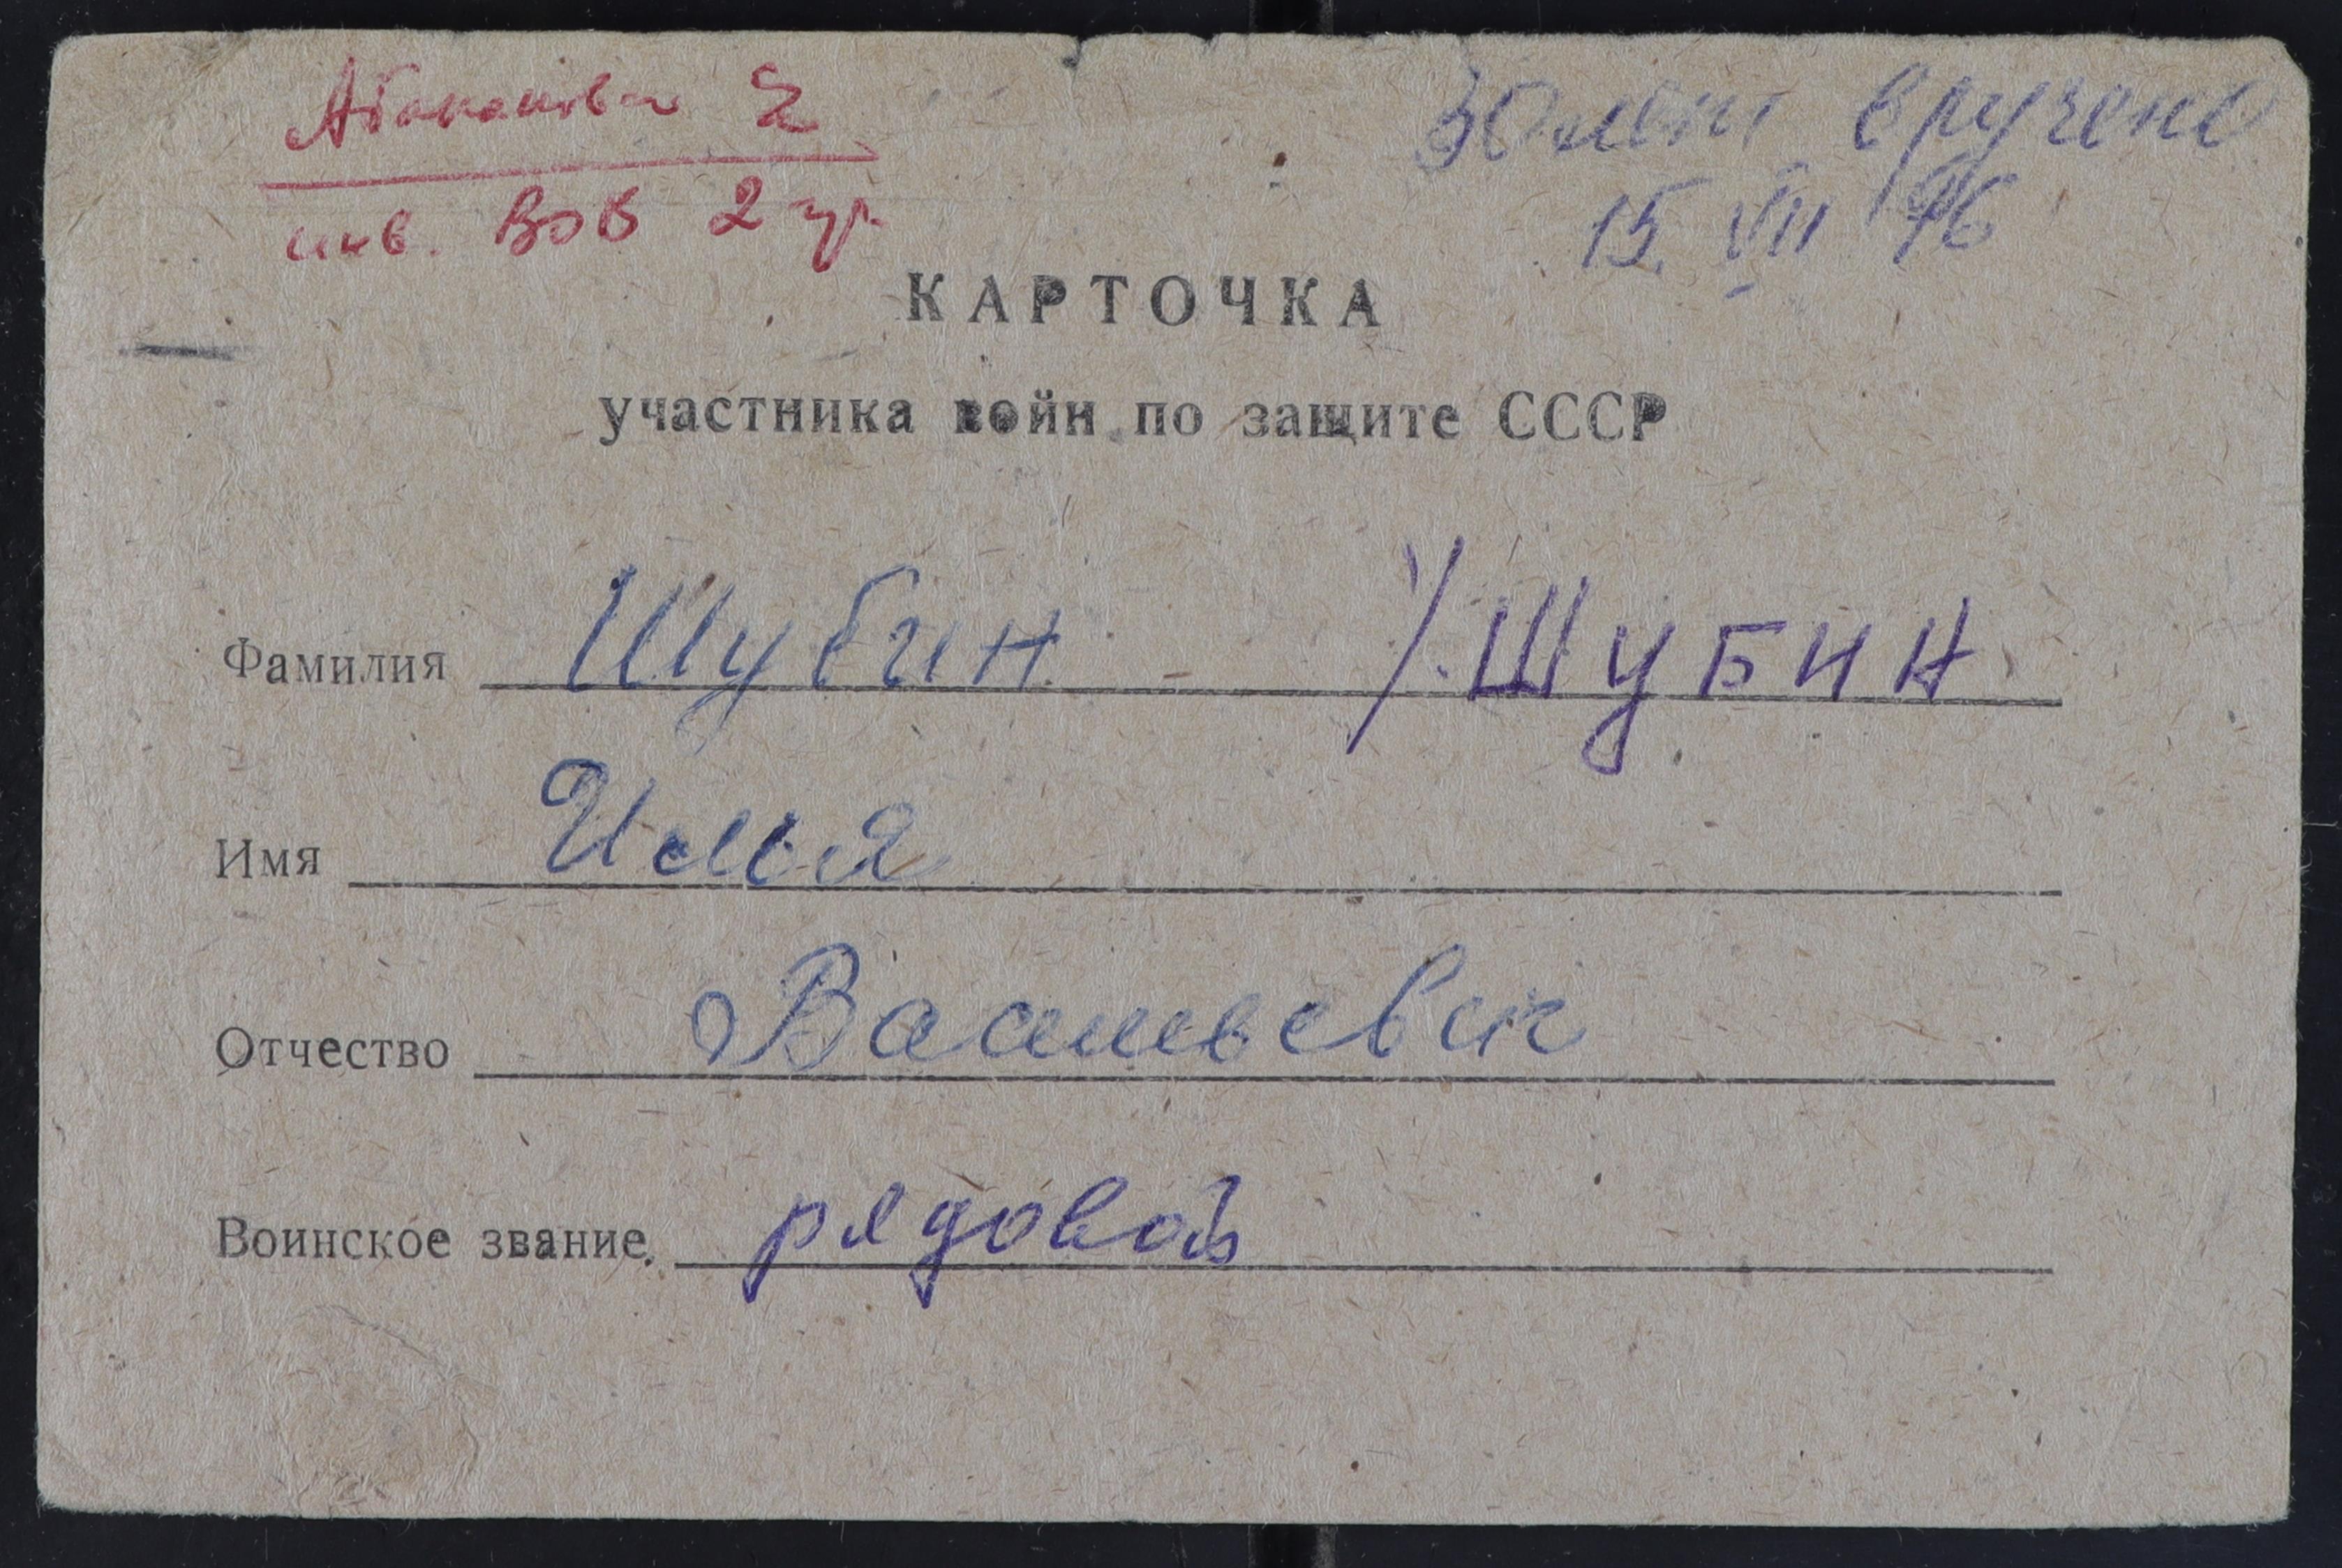 инв. ВОВ 2 гр.
30 лет вручено
15. VII 76
КАРТОЧКА
участника войн по защите СССР
Фамилия Шубин /Шубин
Имя Илья
Отчество Васильевич
Воинское звание рядовой